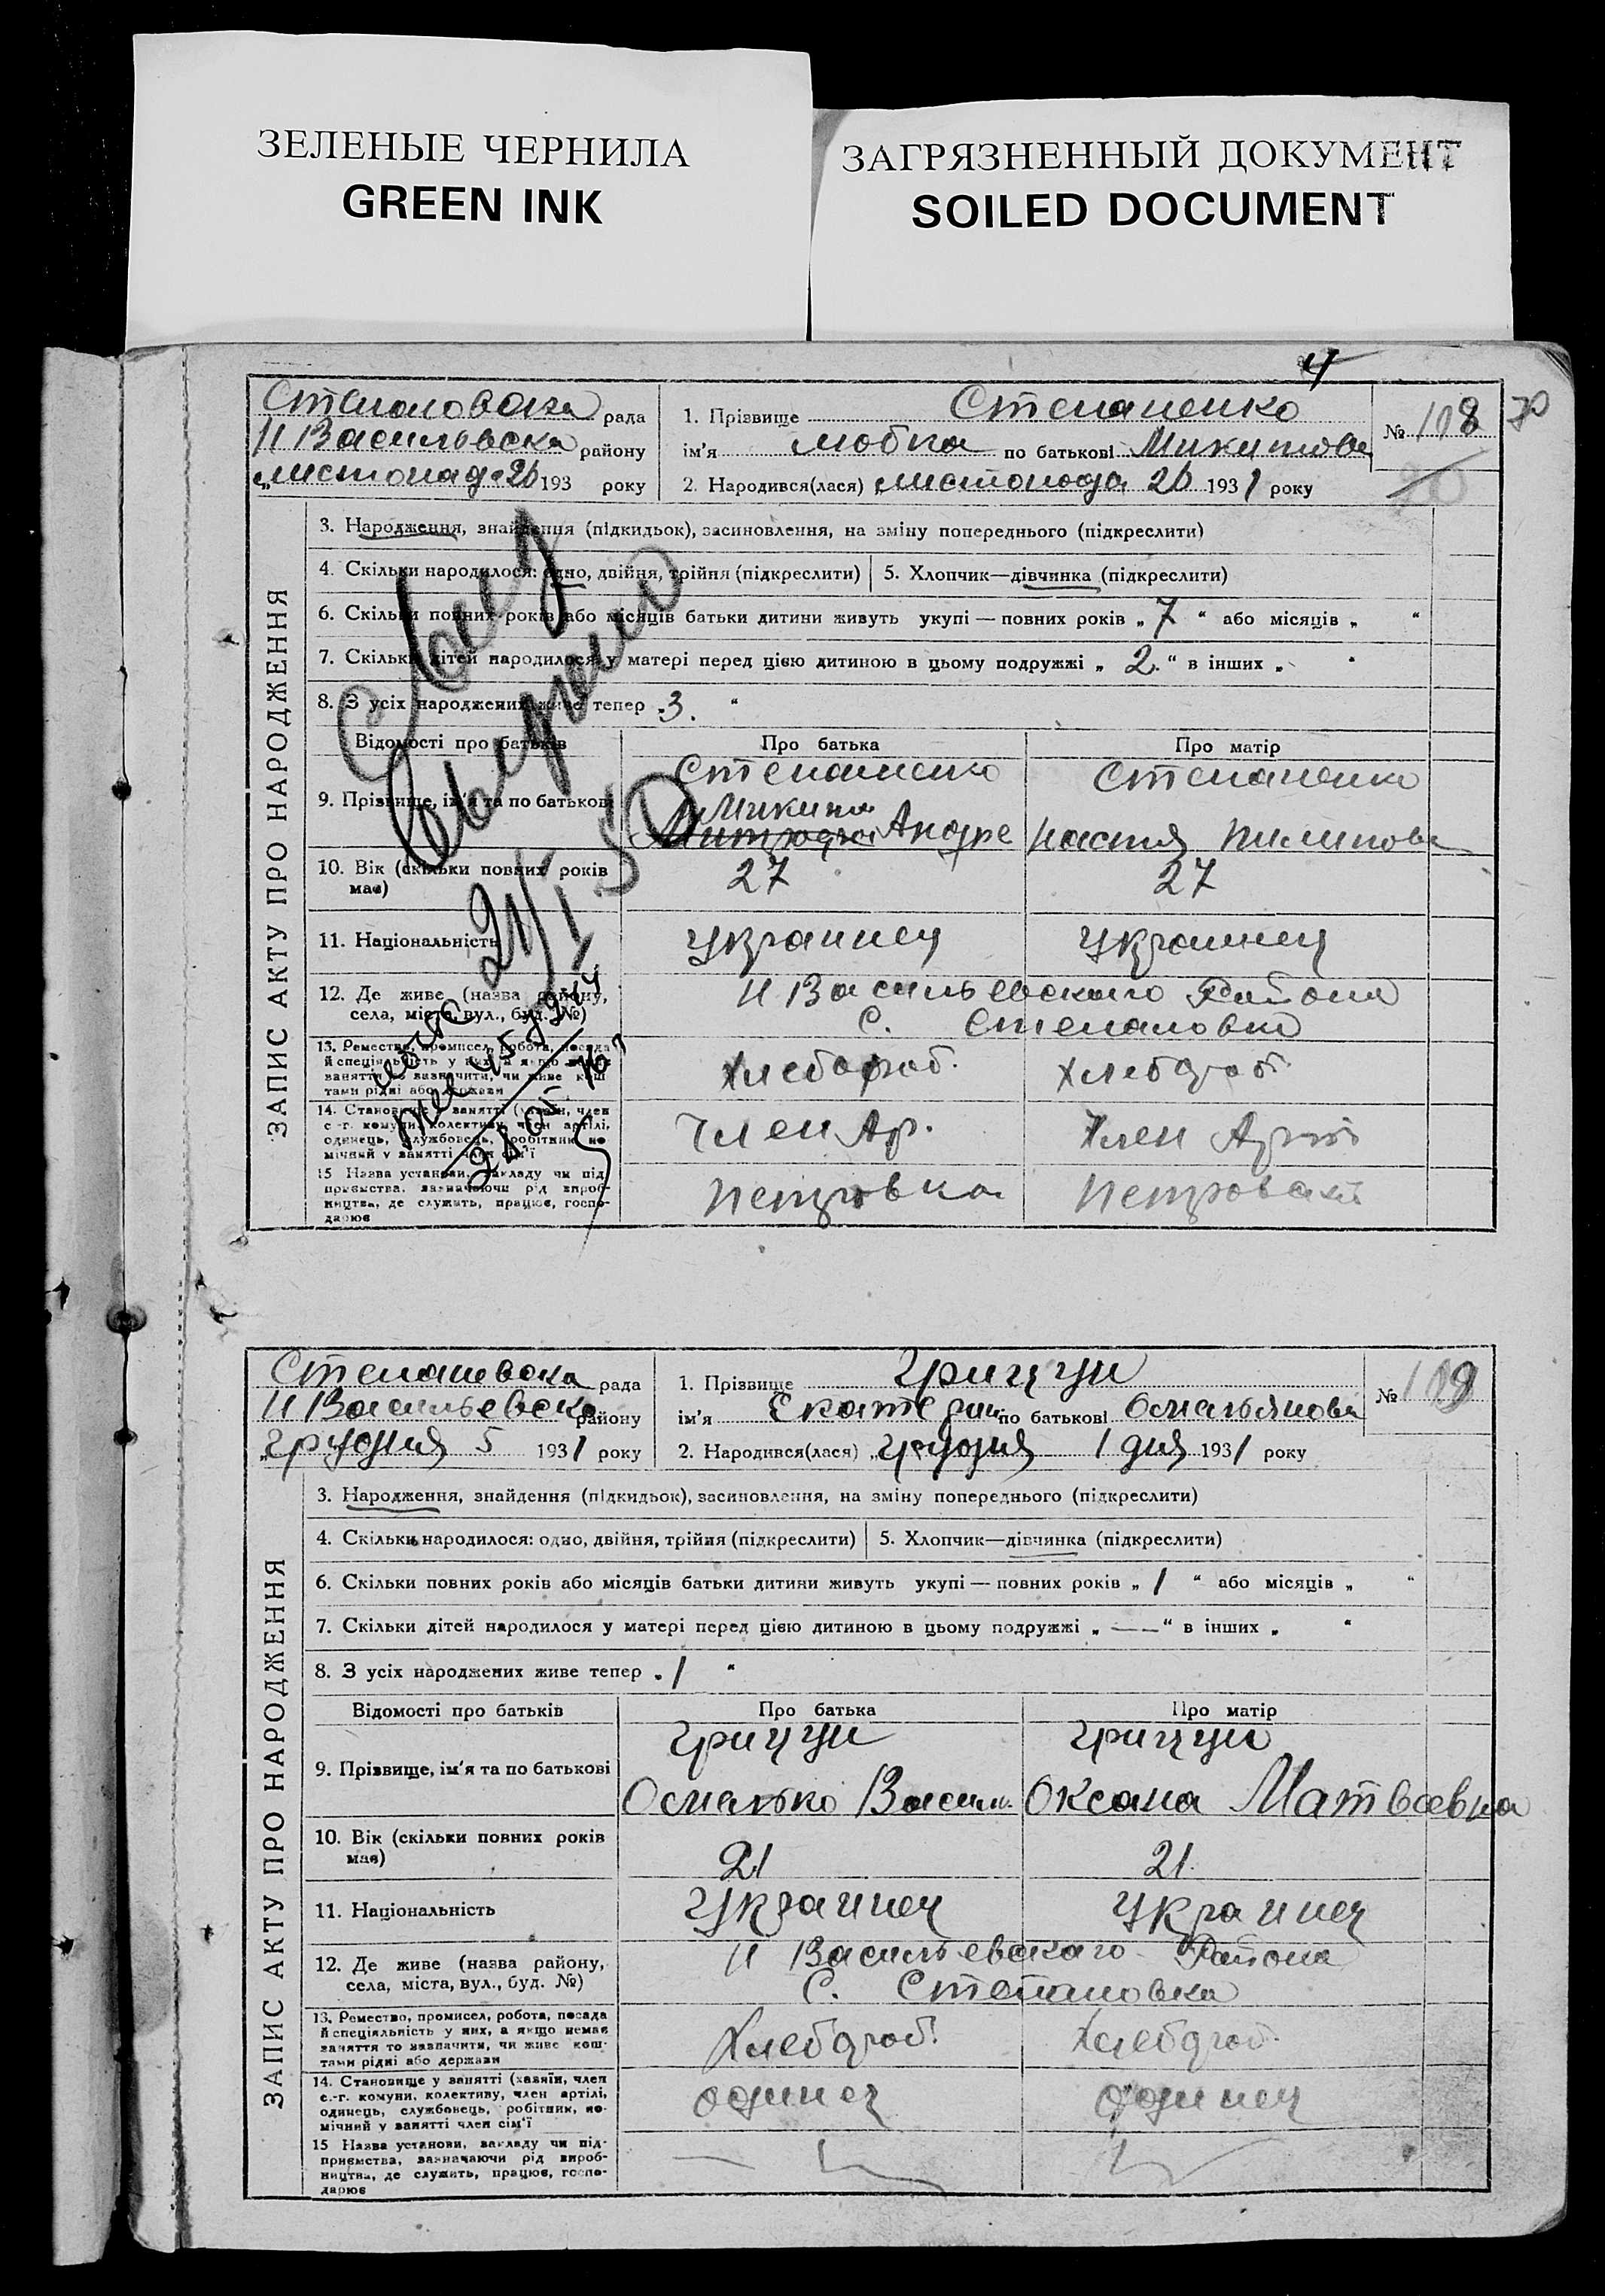 ЗЕЛЕНЫЕ ЧЕРНИЛА
GREEN INK
ЗАГРЯЗНЕННЫЙ ДОКУМЕНТ
SOILED DOCUMENT
4
рада
Н Васильевска району
листопада 26 193 року
1. Прізвище Степаненко
ім'я Любка по батькові Микитова
2. Народився(лася) „листопада 26 1931 року
№ 108
ЗАПИС АКТУ ПРО НАРОДЖЕННЯ
3. Народження, знайдення (підкидьок), засиновлення, на зміну попереднього (підкреслити)
4. Скільки народилося: одно, двійня, трійня (підкреслити)
5. Хлопчик—дівчинка (підкреслити)
6. Скільки повних років або місяців батьки дитини живуть укупі — повних років „ 7 “ або місяців „ “
7. Скільки дітей народилося у матері перед цією дитиною в цьому подружжі „ 2. “ в інших „ “
8. З усіх народжених живе тепер „ 3. “
Відомості про батьків
Про батька
Про матір
9. Прізвище, ім'я та по батькові
Степаненко
Микита
Андре
Степаненко
Настя Пилипова
10. Вік (скільки повних років має)
27
27
11. Національність
Украинец
Украинец
12. Де живе (назва району, села, міста, вул., буд. №)
Н Васильевского Района
С. Степановка
13. Ремество, промисел, робота, посада й спеціяльність у них, а якщо немає заняття то зазначити, чи живе коштами рідні або держави
Хлебороб.
Хлебороб.
14. Становище у занятті (хазяїн, член с.-г. комуни, колективу, член артілі, одинець, службовець, робітник, помічний у занятті член сім'ї
Член Ар.
Член
15 Назва установи, закладу чи підприємства, зазначаючи рід виробництва, де служить, працює, господарює
Петровка
21/I 50
Степановска рада
Н Васильевска району
„грудня 5 1931 року
1. Прізвище Грицун
ім'я по батькові
2. Народився(лася) „грудня 1 дня 1931 року
№ 109
ЗАПИС АКТУ ПРО НАРОДЖЕННЯ
3. Народження, знайдення (підкидьок), засиновлення, на зміну попереднього (підкреслити)
4. Скільки народилося: одно, двійня, трійня (підкреслити)
5. Хлопчик—дівчинка (підкреслити)
6. Скільки повних років або місяців батьки дитини живуть укупі — повних років „ 1 “ або місяців „ “
7. Скільки дітей народилося у матері перед цією дитиною в цьому подружжі „ —— “ в інших „ “
8. З усіх народжених живе тепер „ 1 “
Відомості про батьків
Про батька
Про матір
9. Прізвище, ім'я та по батькові
Грицун
Васил.
Грицун
Оксана Матвеевна
10. Вік (скільки повних років має)
21
21.
11. Національність
Украинец
Украинец
12. Де живе (назва району, села, міста, вул., буд. №)
Н Васильевскаго Района
С. Степановка
13. Ремество, промисел, робота, посада й спеціяльність у них, а якщо немає заняття то зазначити, чи живе коштами рідні або держави
Хлебороб.
Хлебороб.
14. Становище у занятті (хазяїн, член с.-г. комуни, колективу, член артілі, одинець, службовець, робітник, помічний у занятті член сім'ї
одинец
одинец
15 Назва установи, закладу чи підприємства, зазначаючи рід виробництва, де служить, працює, господарює